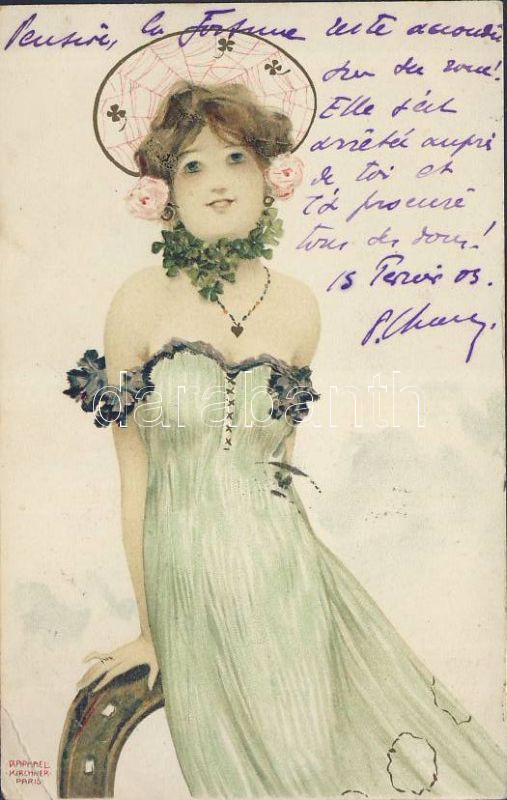 Pensive, la Fortune reste accoudée
sur sa roue!
Elle s'est
arrêtée auprès
de toi et
t'a procuré
tous ses dons!
15 Fevrier 03.
darabanth
RAPHAEL
KIRCHNER
PARIS